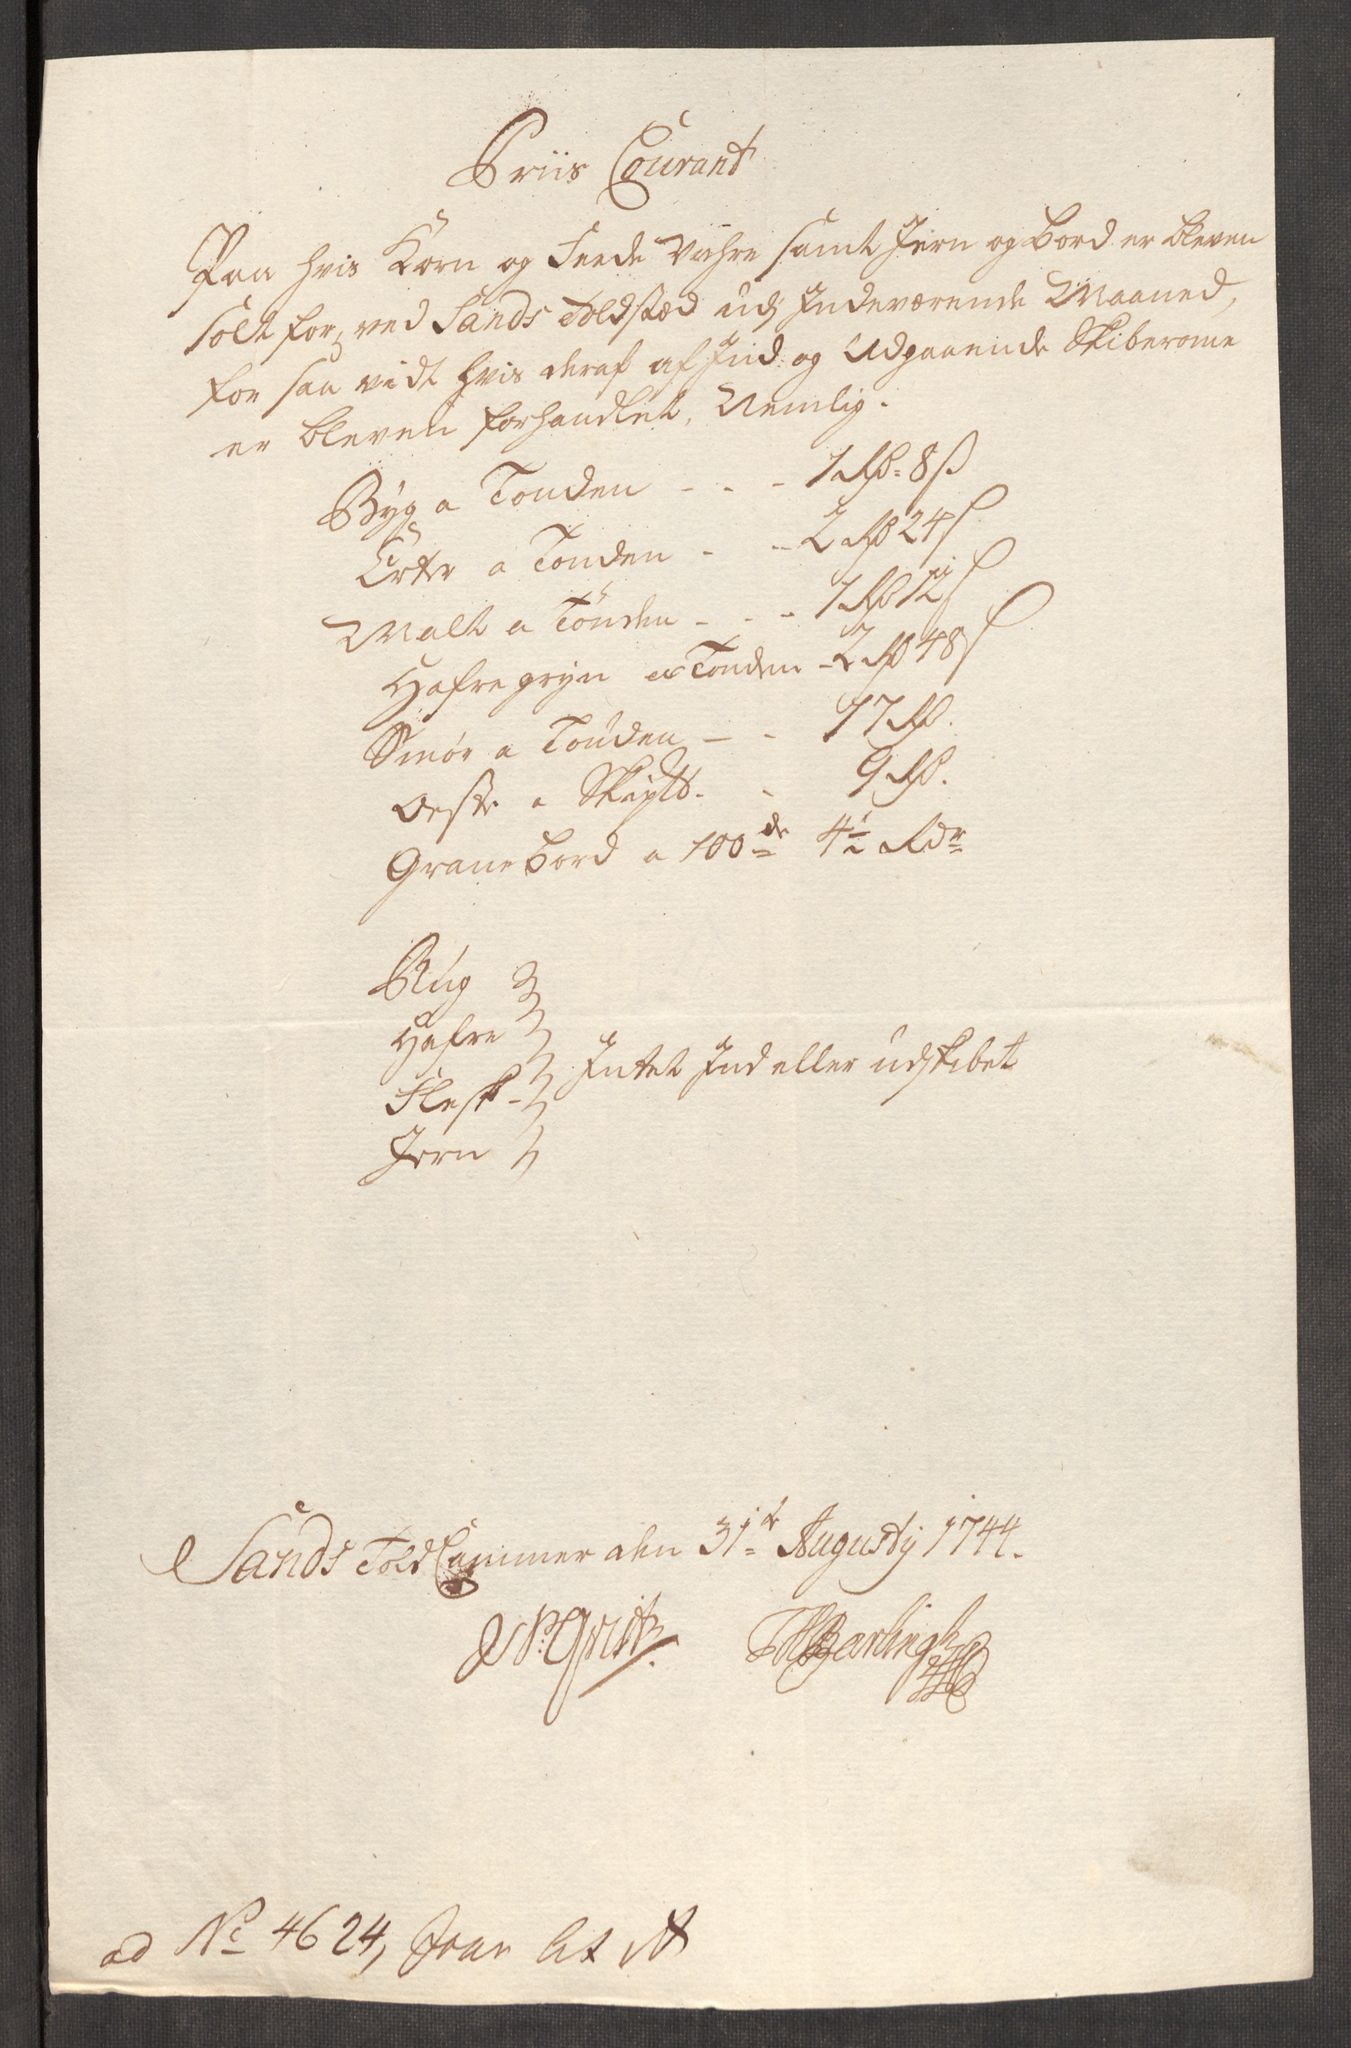 Priis Courant
Paa hvis Korn og Feede Vahre samt Jern og bord er bleven
solt for, ved Sands Toldstæd udj Indeværende Maaned,
for saa vidt hvis deraf af Ind og Udgaaende Skiberome
er bleven forhandlet, Nemlig.
Byg a Tonden - - - 1 Rd. 8 ß
Erter a Tonden - - 2 Rd 24 ß
Malt a Tönden - - - 1 Rd 12 ß
Hafregryn a Tonden - 2 Rd 48 ß
Smør a Tonden - - 17 Rd.
a Skiplb. - 9 Rd.
Granebord a 100de 4 1/2 Rdr
Rug
Hafre
Flesk - Intet Ind eller udskibet
Jern
Sands Told Cammer den 31te Augustij 1744.
ad No 4624,